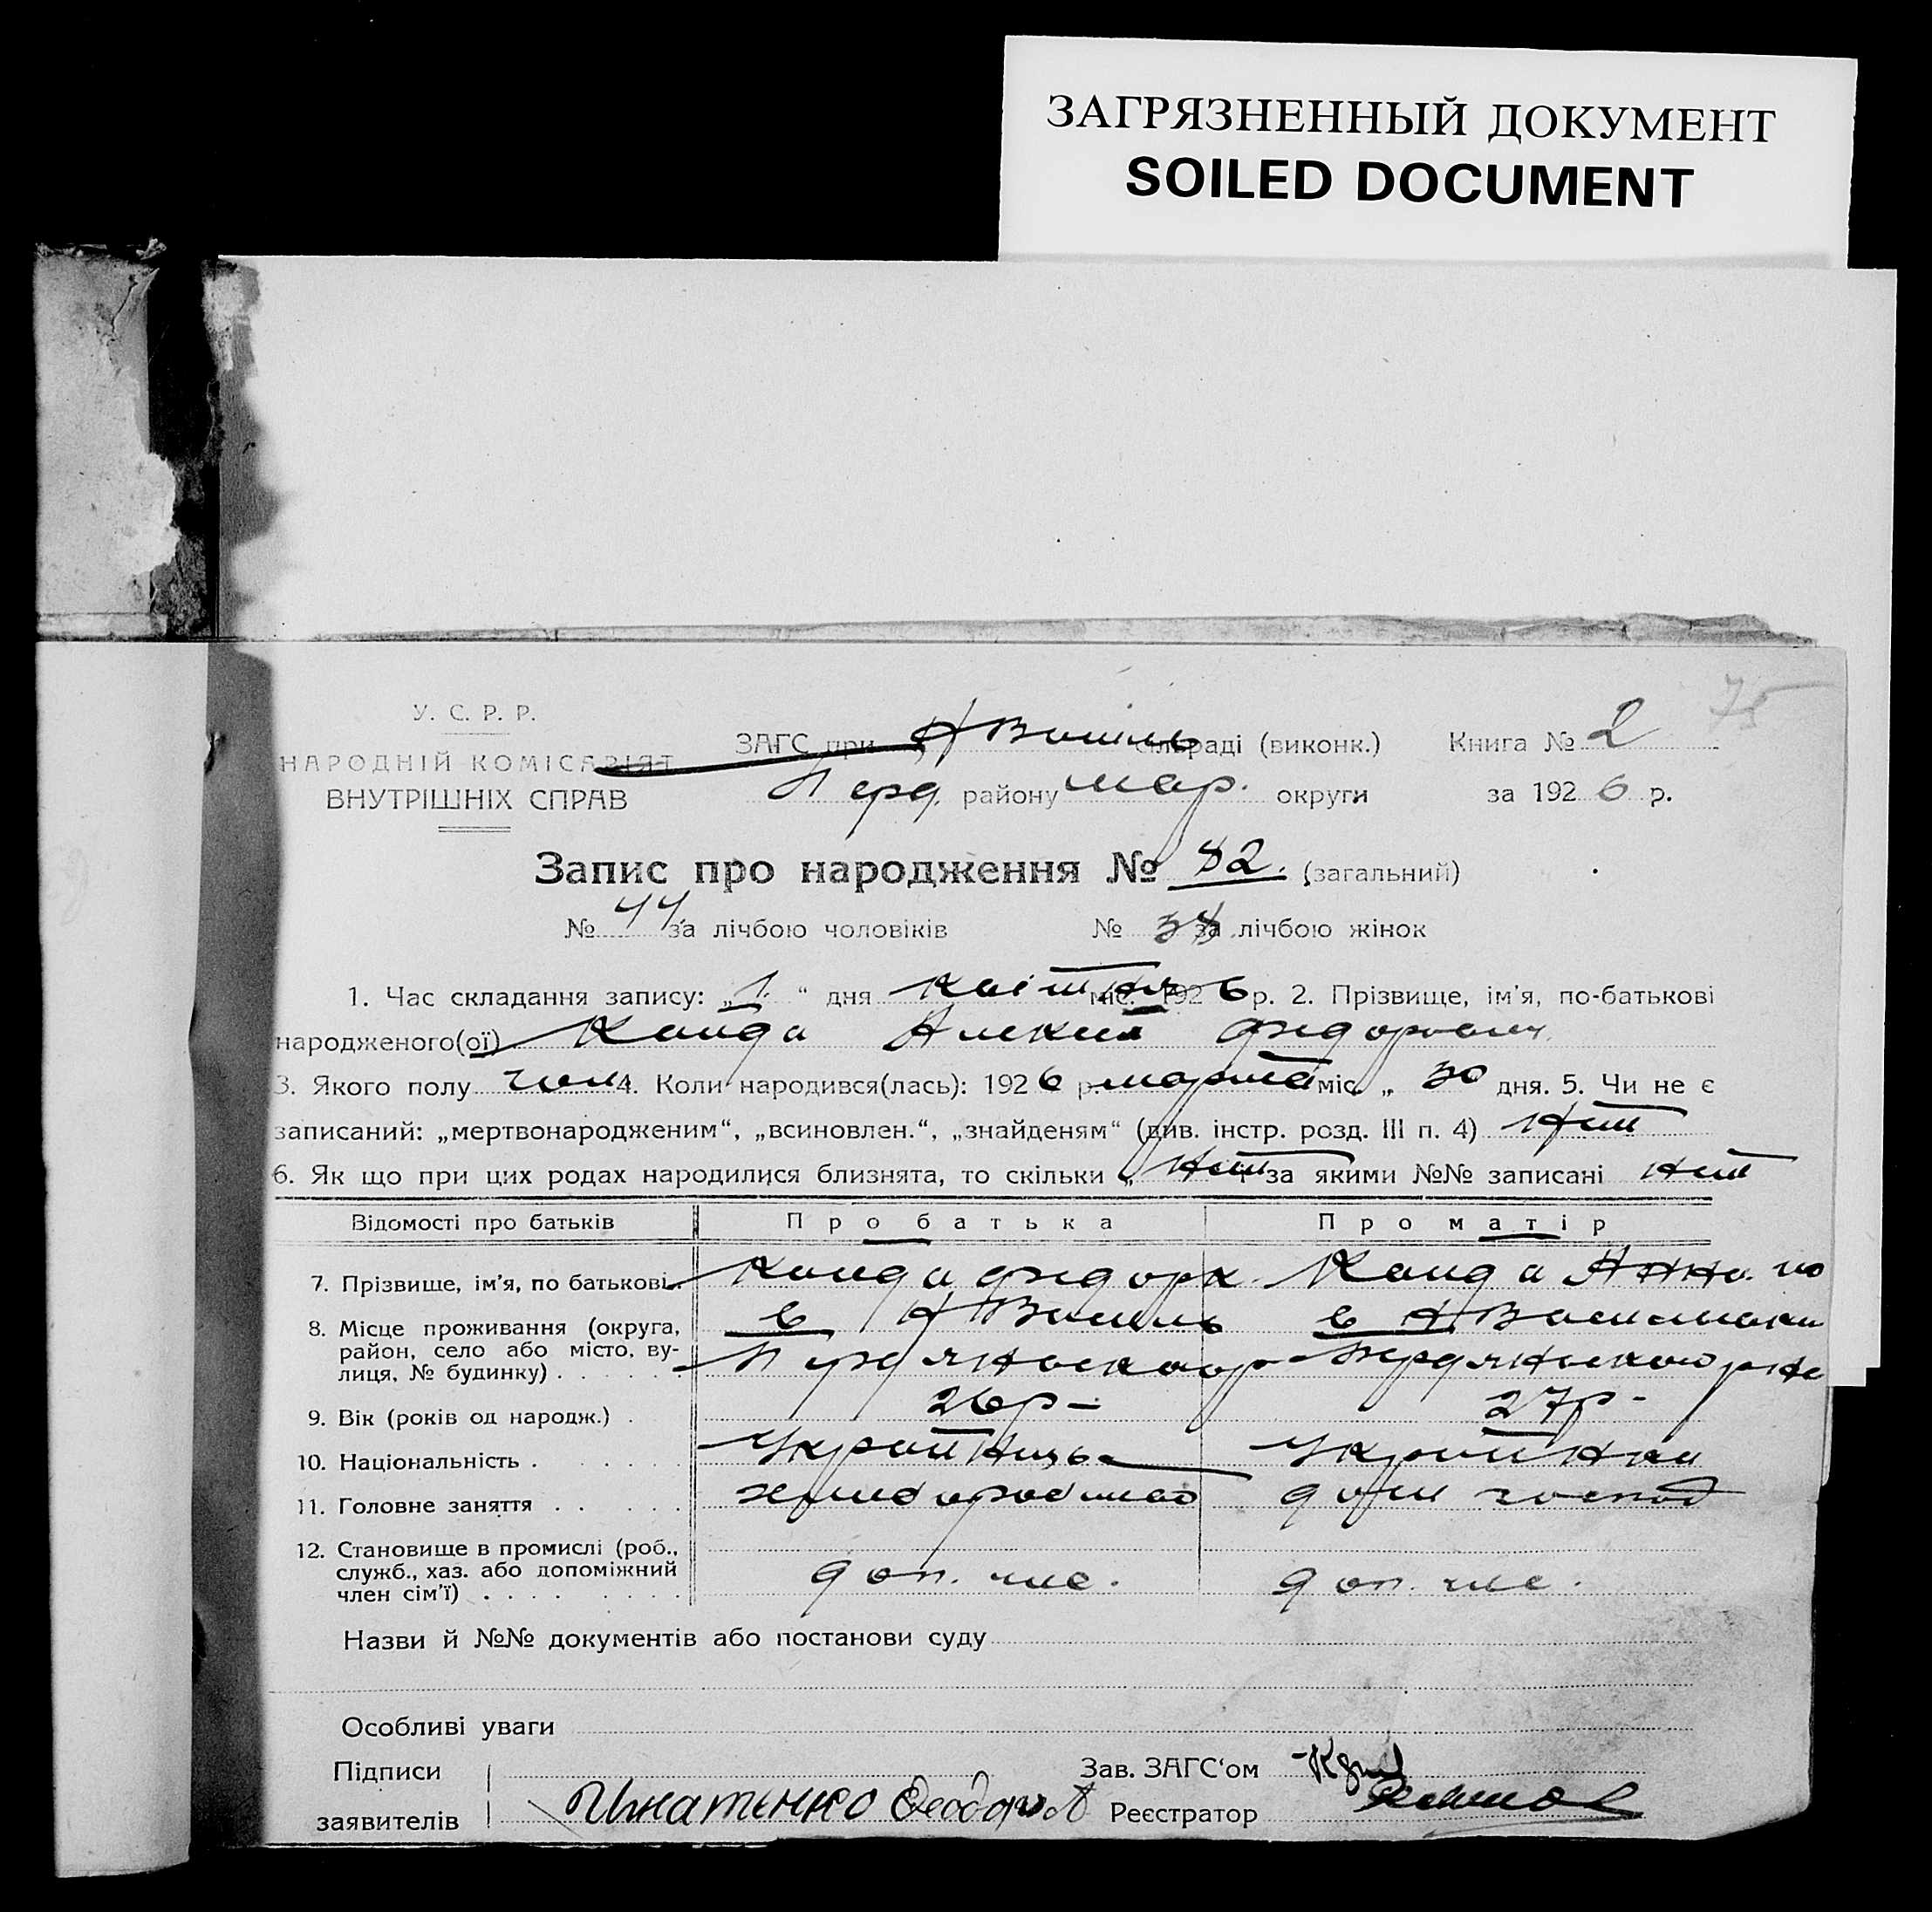 ЗАГРЯЗНЕННЫЙ ДОКУМЕНТ
SOILED DOCUMENT
75
У. С. Р. Р.
НАРОДНІЙ КОМІСАРІЯТ
ВНУТРІШНІХ СПРАВ
ЗАГС при сільраді (виконк.) Книга № 2
району Мар. округи за 1926 р.
Запис про народження № 82. (загальний)
№ 44 за лічбою чоловіків № 38 за лічбою жінок
1. Час складання запису: „1“ дня Квітня міс. 1926 р. 2. Прізвище, ім'я, по-батькові
народженого(ої) Федорович
3. Якого полу чол 4. Коли народився(лась): 1926 р. марта міс. „ 30 дня. 5. Чи не є
записаний: „мертвонародженим“, „всиновлен.“, „знайденям“ (див. інстр. розд. III п. 4) Нит
6. Як що при цих родах народилися близнята, то скільки „ Нит за якими №№ записані нит
Відомості про батьків Про батька Про матір
7. Прізвище, ім'я, по батькові Федор Анна
8. Місце проживання (округа, в в
район, село або місто, ву-
лиця, № будинку)
9. Вік (років од народж.) 26р- 27р-
10. Національність Українка
11. Головне заняття дом господ
12. Становище в промислі (роб., служб., хаз. або допоміжний член сім'ї) доп. чле. доп. чле.
Назви й №№ документів або постанови суду
Особливі уваги
Підписи Зав. ЗАГС'ом
заявителів Реєстратор